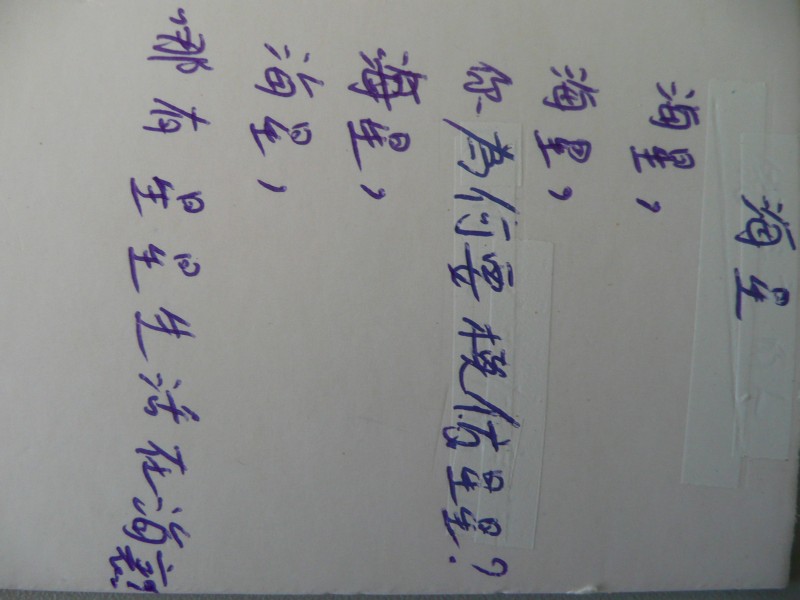 海星
海星,
海星,
你為何要模仿星星?
海星,
海星,
那有星星生活在海裡?